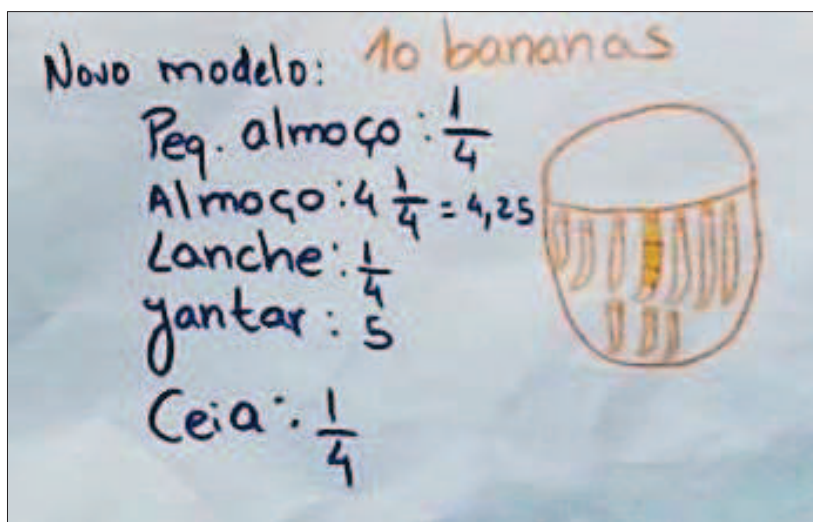 Novo modelo: 10 bananas
Peq. almoço: 1/4
Almoço: 4 1/4 = 4,25
Lanche: 1/4
Jantar: 5
Ceia: 1/4